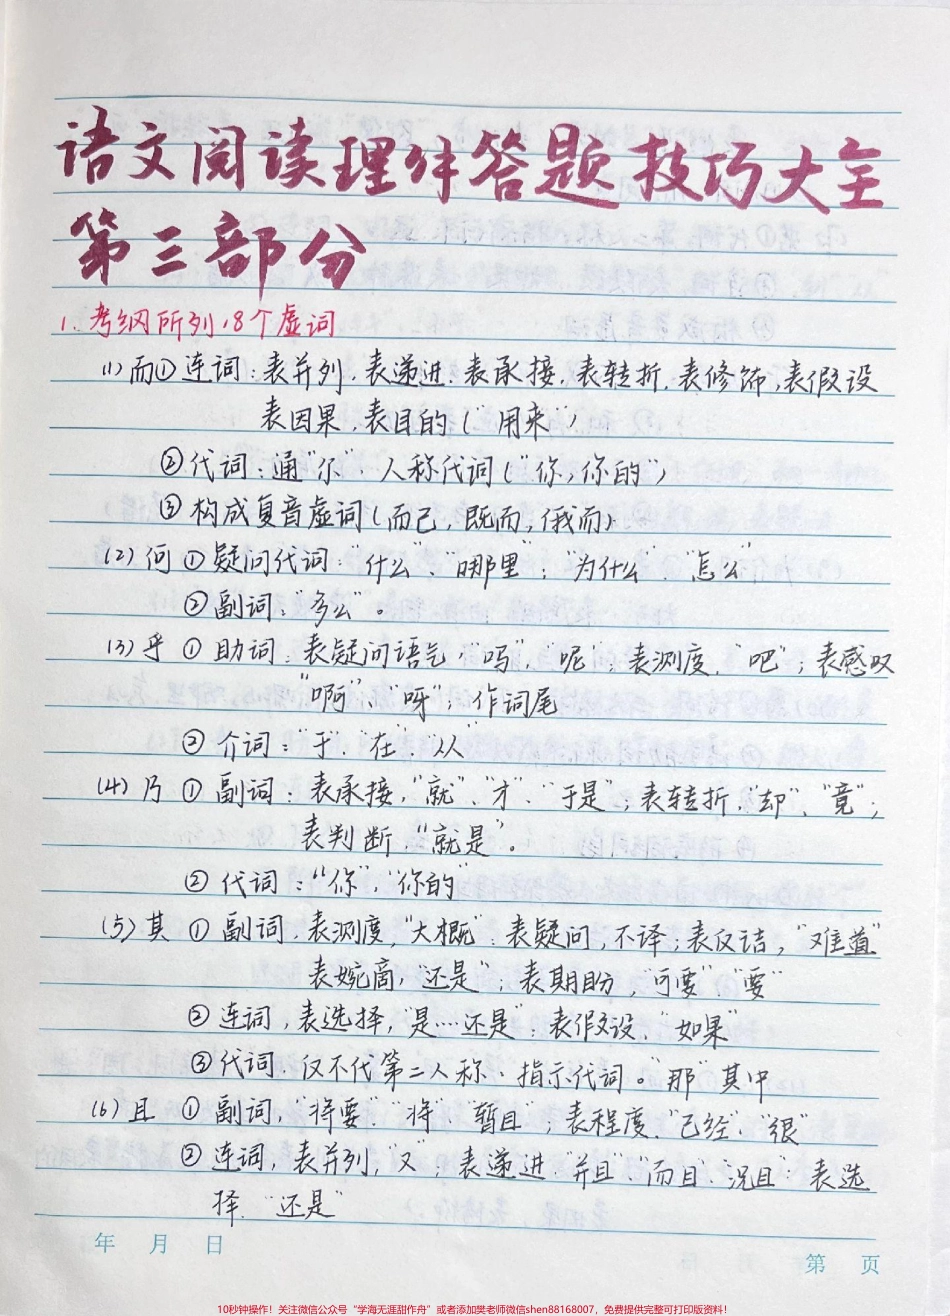 语文阅读理解答题技巧大全
第三部分
1、考纲所列18个虚词
(1)而①连词:表并列、表递进、表承接、表转折、表修饰、表假设
表因果,表目的(“用来”)
②代词:通“尔”人称代词(“你,你的”)
③构成复音虚词(而已,既而,俄而)
(2)何①疑问代词:“什么”、“哪里”;“为什么”、“怎么”
②副词:“多么”。
(3)乎①助词:表疑问语气“吗、呢”;表测度,“吧”;表感叹
“啊”、“呀”;作词尾
②介词:于“在”“从”
(4)乃①副词:表承接,“就”、“才”、“于是”;表转折,“却”、“竟”;
表判断,“就是”。
②代词:“你”,“你的”
(5)其①副词,表测度,“大概”;表疑问,不译;表反诘,“难道”
表婉商,“还是”;表期盼,“可要”“要”
②连词,表选择,“是…还是”表假设,“如果”
③代词,仅不代第二人称,指示代词。“那”“其中
(6)且①副词,“将要”“将”“暂且”;表程度、“已经”、“很”
②连词,表并列,“又”表递进“并且”、“而且、况且”表选
择,“还是”
年 月 日
第 页
10秒钟操作!关注微信公众号“学海无涯甜作舟”或者添加樊老师微信shen88168007,免费提供完整可打印版资料!